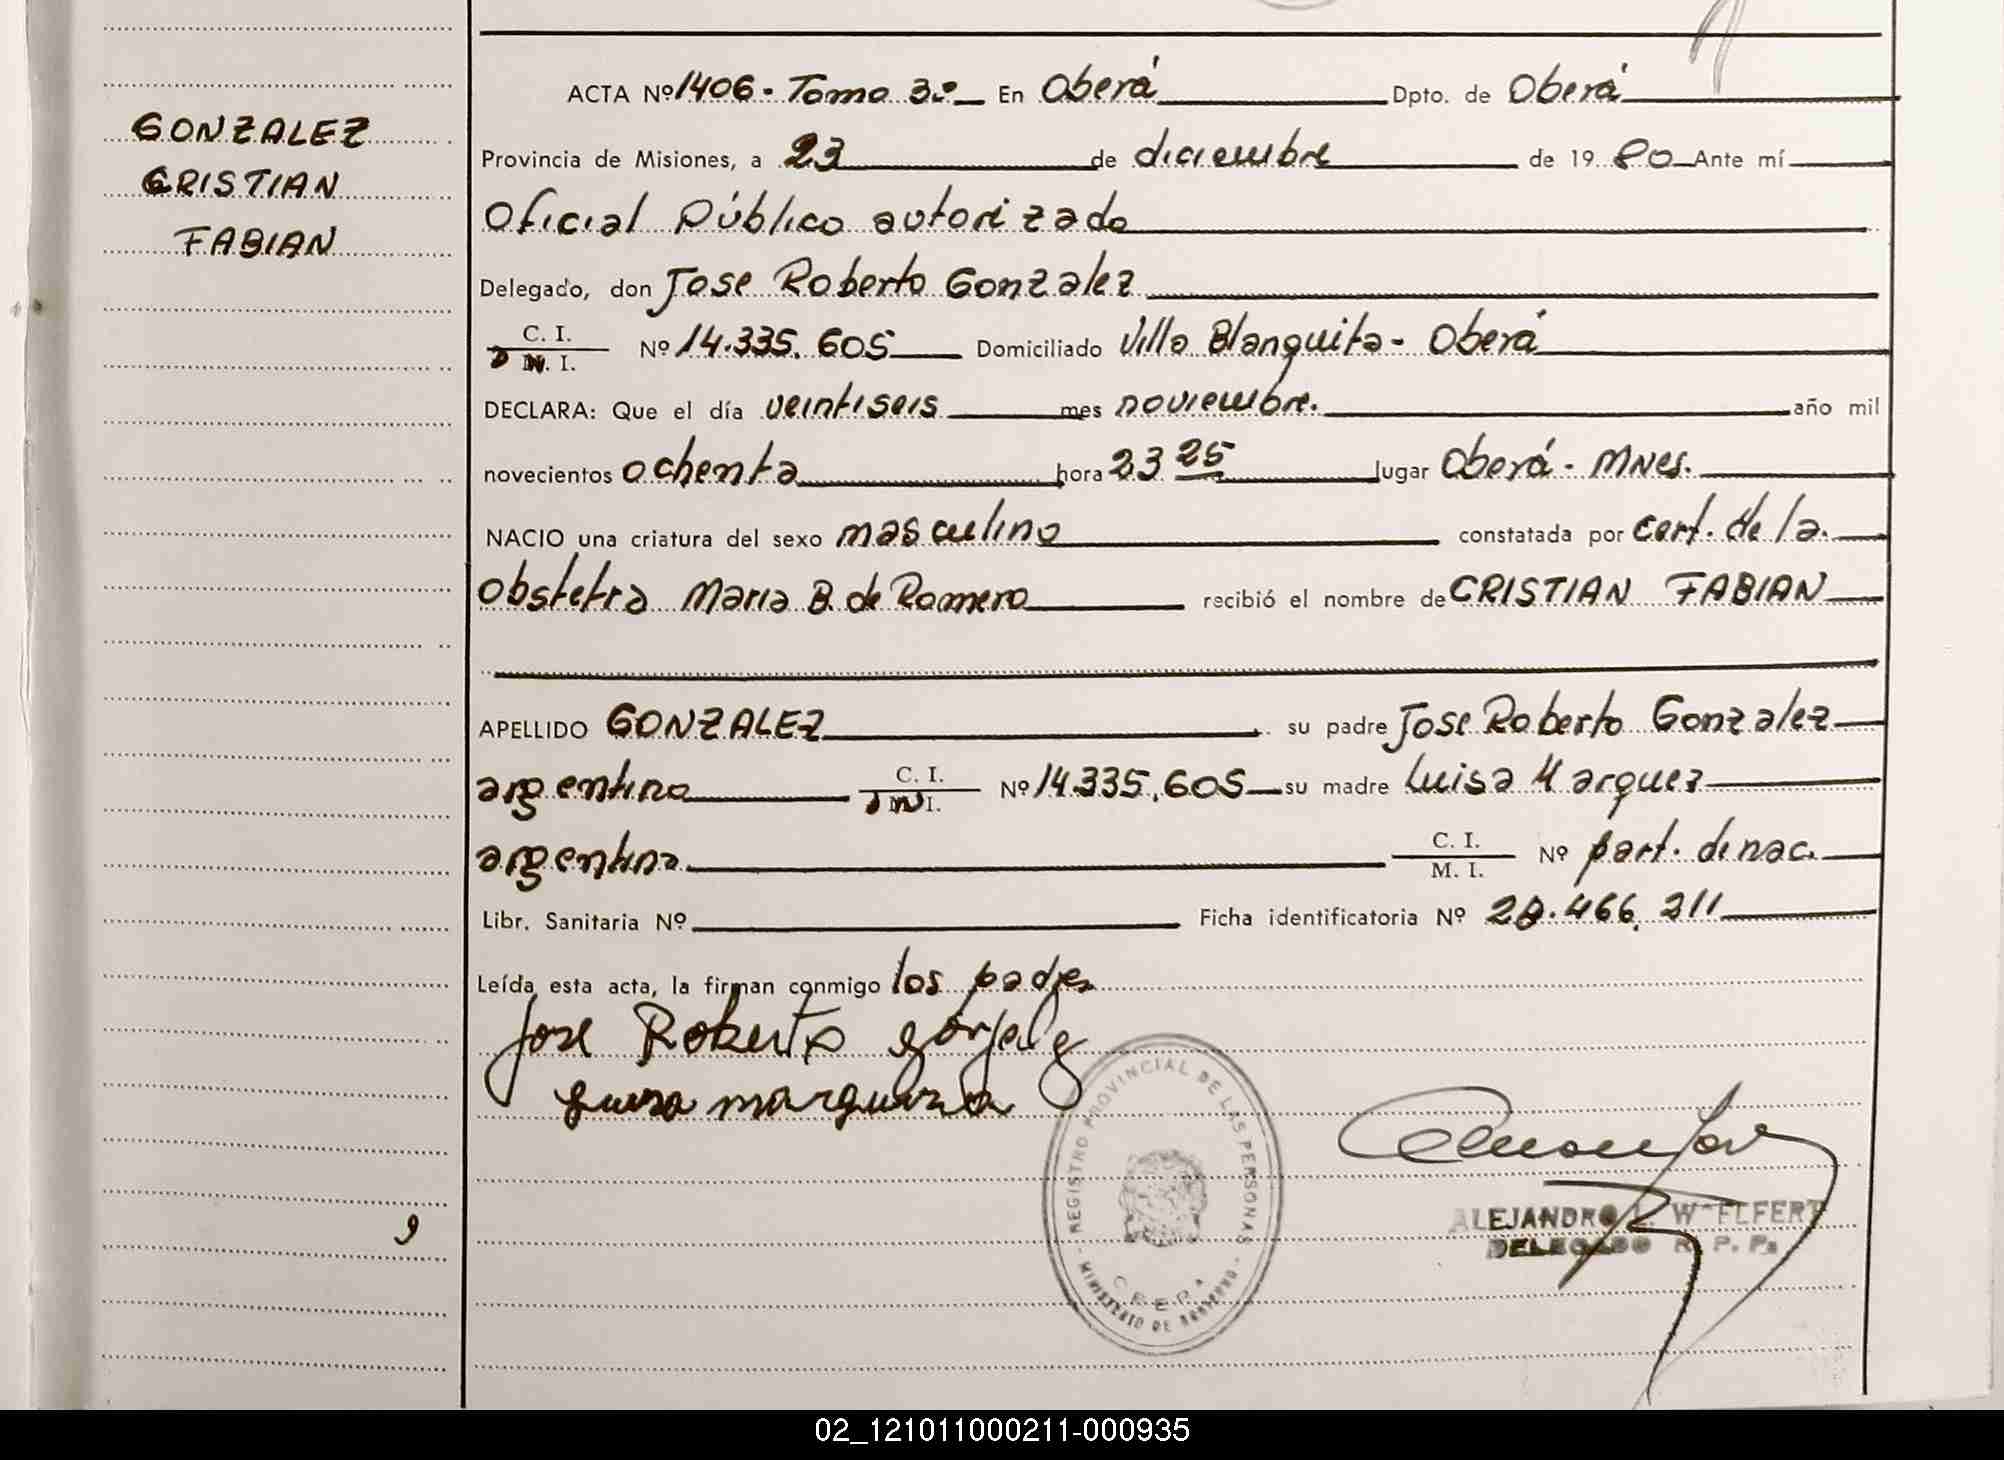 GONZALEZ
CRISTIAN
FABIAN
ACTA Nº 1406 - Tomo 3º En Oberá Dpto. de Oberá
Provincia de Misiones, a 23 de diciembre de 1980 Ante mí
Oficial Público autorizado
Delegado, don Jose Roberto Gonzalez
C. I.
D N. I. Nº 14.335.605 Domiciliado Villa Blanquita - Oberá
DECLARA: Que el día veintiseis mes noviembre. año mil
novecientos ochenta hora 23 25 lugar Oberá - Mnes.
NACIO una criatura del sexo masculino constatada por cert. de la.
Obstetra Maria B. de Romero recibió el nombre de CRISTIAN FABIAN
APELLIDO GONZALEZ su padre Jose Roberto Gonzalez
argentino C. I.
D N I. Nº 14.335.605 su madre Luisa Marquez
argentina C. I.
M. I. Nº part. de nac.
Libr. Sanitaria Nº Ficha identificatoria Nº 28.466.211
Leída esta acta, la firman conmigo los padres
Jose Roberto gonzalez
REGISTRO PROVINCIAL DE LAS PERSONAS
MINISTERIO DE GOBIERNO
ALEJANDRO
DELEGADO R. P. P.
9
02_121011000211-000935